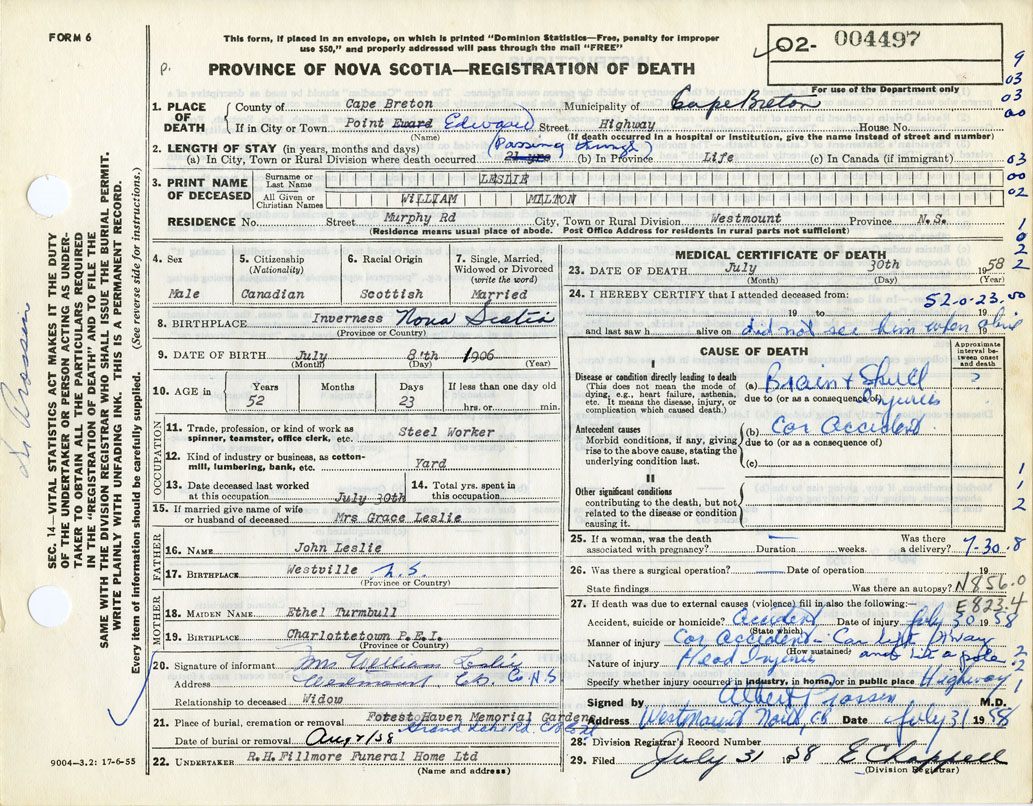 FORM 6
This form, if placed in an envelope, on which is printed "Dominion Statistics—Free, penalty for improper
use $50," and properly addressed will pass through the mail "FREE"
02- 004497
For use of the Department only
P.
PROVINCE OF NOVA SCOTIA—REGISTRATION OF DEATH
1. PLACE OF DEATH
County of Cape Breton Municipality of Cape Breton
If in City or Town Point Eward Edward Street Highway House No.
(Name) (If death occurred in a hospital or institution, give the name instead of street and number)
2. LENGTH OF STAY (in years, months and days) (Passing through)
(a) In City, Town or Rural Division where death occurred 21 yrs (b) In Province Life (c) In Canada (if immigrant)
3. PRINT NAME OF DECEASED
Surname or Last Name LESLIE
All Given or Christian Names WILLIAM MILTON
RESIDENCE No. Street Murphy Rd City, Town or Rural Division Westmount Province N.S.
(Residence means usual place of abode. Post Office Address for residents in rural parts not sufficient)
4. Sex
Male
5. Citizenship
(Nationality)
Canadian
6. Racial Origin
Scottish
7. Single, Married,
Widowed or Divorced
(write the word)
Married
8. BIRTHPLACE Inverness Nova Scotia
(Province or Country)
9. DATE OF BIRTH July 8'th 1906
(Month) (Day) (Year)
10. AGE in
Years 52
Months
Days 23
If less than one day old
hrs. or min.
OCCUPATION
11. Trade, profession, or kind of work as
spinner, teamster, office clerk, etc. Steel Worker
12. Kind of industry or business, as cotton-
mill, lumbering, bank, etc. Yard
13. Date deceased last worked
at this occupation July 30th
14. Total yrs. spent in
this occupation
15. If married give name of wife
or husband of deceased Mrs Grace Leslie
FATHER
16. NAME John Leslie
17. BIRTHPLACE Westville N.S.
(Province or Country)
MOTHER
18. MAIDEN NAME Ethel Turmbull
19. BIRTHPLACE Charlottetown P.E.I.
(Province or Country)
20. Signature of informant Mrs William Leslie
Address Westmount C.B. Co. N.S
Relationship to deceased Widow
21. Place of burial, cremation or removal Forest Haven Memorial Gardens
Grand Lake Rd.
Date of burial or removal Aug 2/58
22. UNDERTAKER R.H. Fillmore Funeral Home Ltd
(Name and address)
9004—3.2: 17-6-55
MEDICAL CERTIFICATE OF DEATH
23. DATE OF DEATH July 30th 1958
(Month) (Day) (Year)
24. I HEREBY CERTIFY that I attended deceased from: 52-0-23
19 to 19
and last saw h alive on did not see him when alive 19
CAUSE OF DEATH
Approximate interval between onset and death
I
Disease or condition directly leading to death
(This does not mean the mode of
dying, e.g., heart failure, asthenia,
etc. It means the disease, injury, or
complication which caused death.)
(a) Brain & Skull
due to (or as a consequence of) Injuries
Antecedent causes
Morbid conditions, if any, giving
rise to the above cause, stating the
underlying condition last.
(b) Car Accident
due to (or as a consequence of)
(c)
II
Other significant conditions
contributing to the death, but not
related to the disease or condition
causing it.
25. If a woman, was the death
associated with pregnancy? Duration weeks.
Was there
a delivery? 7-30-8
26. Was there a surgical operation? Date of operation 19
State findings Was there an autopsy? N856.0
E823.4
27. If death was due to external causes (violence) fill in also the following:—
Accident, suicide or homicide? Accident Date of injury July 30 1958
(State which)
Manner of injury Car Accident - Car left H'way
(How sustained) and hit a pole
Nature of injury Head Injuries
Specify whether injury occurred in industry, in home, or in public place Highway
Signed by Albert Prossin M.D.
Address Westmount North C.B Date July 31 1958
28. Division Registrar's Record Number
29. Filed July 31 1958 E Chappell
(Division Registrar)
9
03
03
00
03
00
02
1
0
2
2
1
1
2
2
2
1
SEC. 14—VITAL STATISTICS ACT MAKES IT THE DUTY
OF THE UNDERTAKER OR PERSON ACTING AS UNDER-
TAKER TO OBTAIN ALL THE PARTICULARS REQUIRED
IN THE "REGISTRATION OF DEATH" AND TO FILE THE
SAME WITH THE DIVISION REGISTRAR WHO SHALL ISSUE THE BURIAL PERMIT.
WRITE PLAINLY WITH UNFADING INK. THIS IS A PERMANENT RECORD.
Every item of information should be carefully supplied. (See reverse side for instructions.)